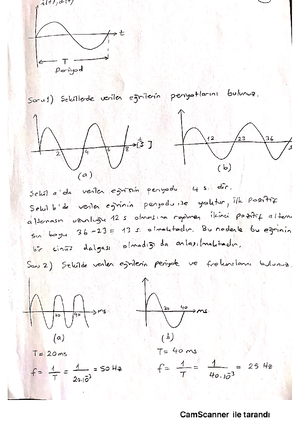 i(t), u(t)
t
T
Periyod
Soru 1) Şekillerde verilen eğrilerin periyotlarını bulunuz.
2 4 6 8 t[s]
12 23 36
(a) (b)
Şekil a'da verilen eğrinin periyodu 4 s. dir.
Şekil b'de verilen eğrinin periyodu ise yoktur, ilk pozitif
alternasın uzunluğu 12 s olmasına rağmen ikinci pozitif altern
sın boyu 36-23 = 13 s olmaktadır. Bu nedenle bu eğrinin
bir sinüs dalgası olmadığı da anlaşılmaktadır.
Soru 2) Şekilde verilen eğrilerin periyot ve frekanslarını bulunuz.
20 40 ms
20 40 ms
(a) (b)
T = 20 ms T = 40 ms
f = 1/T = 1/20.10⁻³ = 50 Hz f = 1/T = 1/40.10⁻³ = 25 Hz
CamScanner ile tarandı